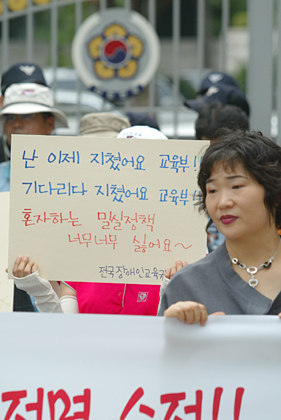 난 이제 지쳤어요 교육부!!
기다리다 지쳤어요 교육부!!
혼자하는 밀실정책
너무너무 싫어요~
전국장애인교육권
전면 수정!!